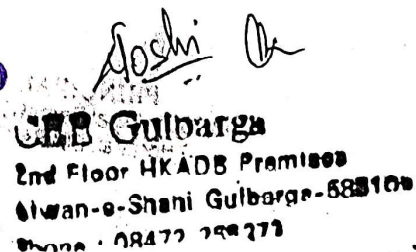 Joshi
Gulbarga
2nd Floor HKADB Premises
Aiwan-e-Shahi Gulbarga-585104
Phone : 08472